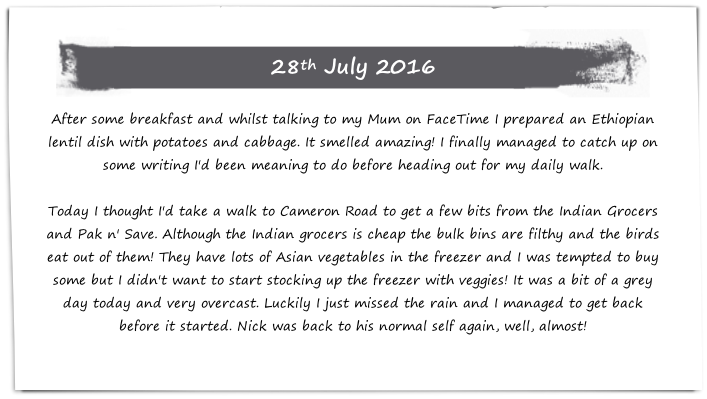 28th July 2016
After some breakfast and whilst talking to my Mum on FaceTime I prepared an Ethiopian
lentil dish with potatoes and cabbage. It smelled amazing! I finally managed to catch up on
some writing I'd been meaning to do before heading out for my daily walk.
Today I thought I'd take a walk to Cameron Road to get a few bits from the Indian Grocers
and Pak n' Save. Although the Indian grocers is cheap the bulk bins are filthy and the birds
eat out of them! They have lots of Asian vegetables in the freezer and I was tempted to buy
some but I didn't want to start stocking up the freezer with veggies! It was a bit of a grey
day today and very overcast. Luckily I just missed the rain and I managed to get back
before it started. Nick was back to his normal self again, well, almost!